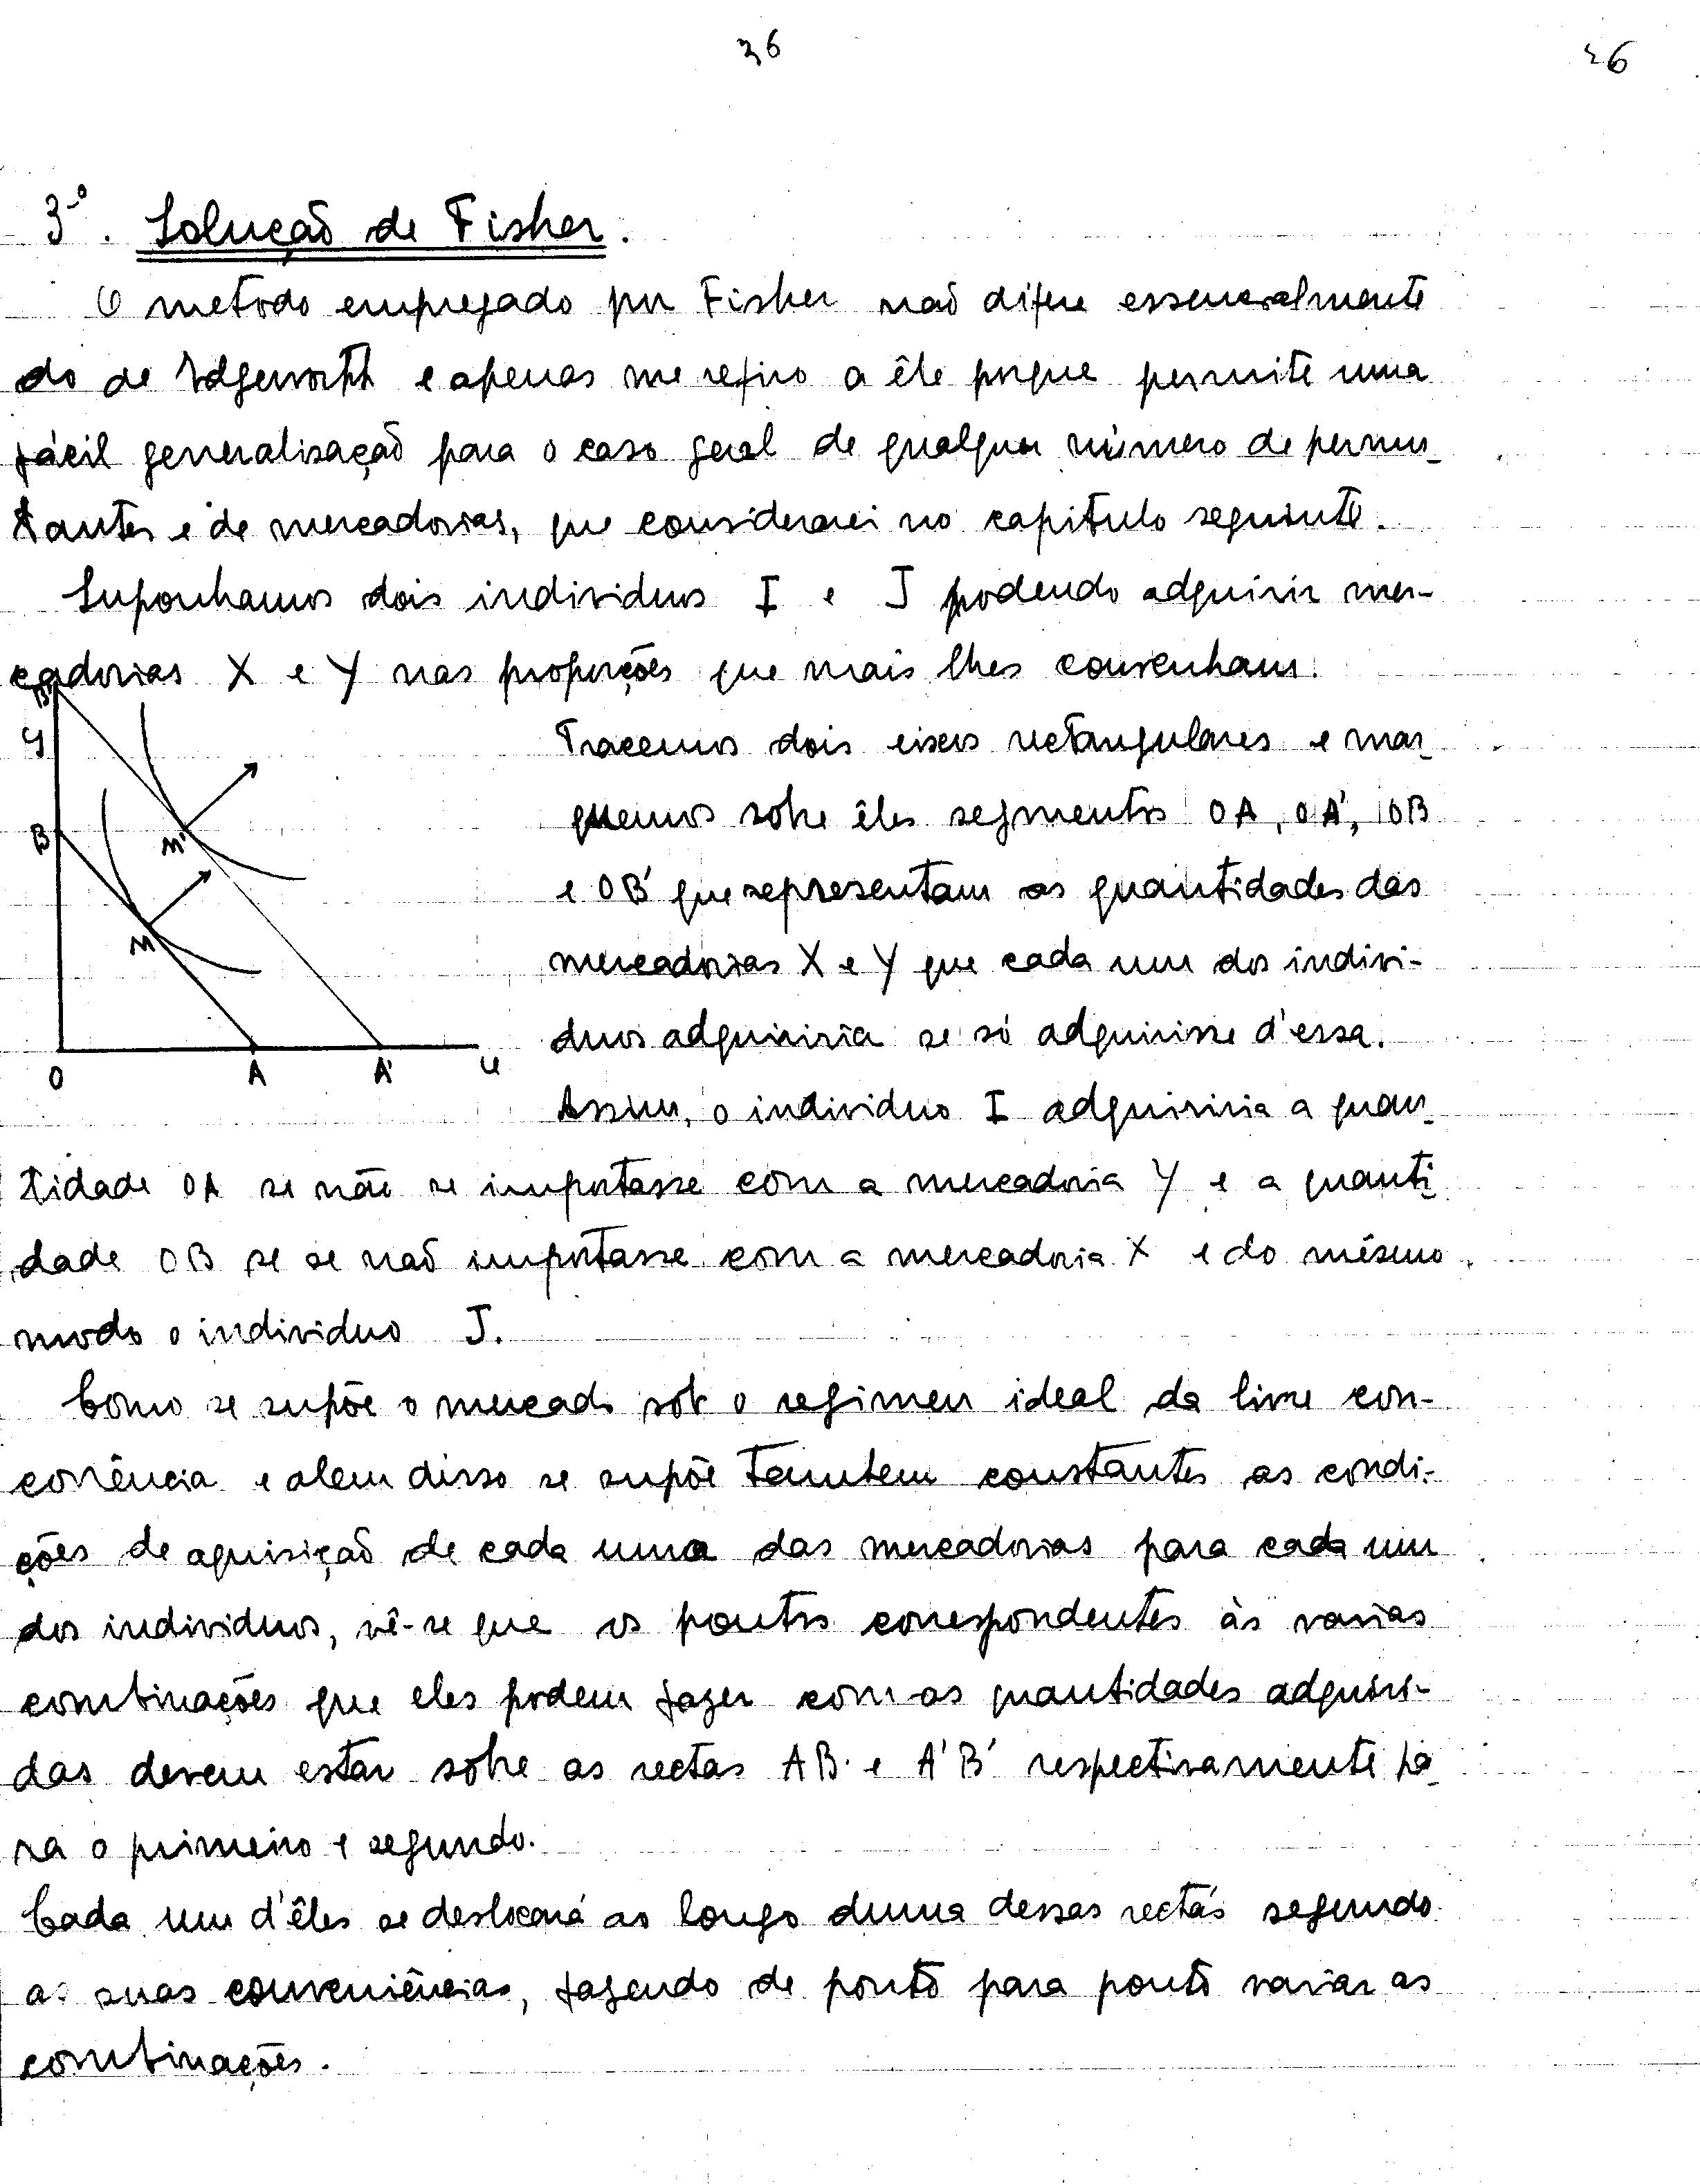 36
36
3.º Solução de Fisher.
O metodo empregado por Fisher naõ difere essencialmente
do de Edgeworth e apenas me refiro a êle porque permite uma
fácil generalisaçaõ para o caso geral de qualquer número de permu_
tantes e de mercadorias, que considerarei no capitulo seguinte.
Suponhamos dois individuos I e J podendo adquirir mer-
cadorias X e Y nas proporções que mais lhes convenham.
B'
Tracemos dois eixos rectangulares e mar_
y
quemos sobre êles segmentos OA, OA', OB
B
M'
e OB' que representam as quantidades das
M
mercadorias X e Y que cada um dos indivi-
duos adquiriria se só adquirisse d'essa.
O A A'
Assim, o individuo I adquiriria a quan_
tidade OA se não se importasse com a mercadoria Y e a quanti_
dade OB se se naõ importasse com a mercadoria X e do mêsmo
modo o individuo J.
Como se supõe o mercado sob o regimen ideal da livre con-
corrência e alem disso se supõe tambem constantes as condi-
ções de aquisiçaõ de cada uma das mercadorias para cada um
dos individuos, vê-se que os pontos correspondentes às varias
combinações que eles podem fazer com as quantidades adquiri-
das devem estar sobre as rectas AB e A'B' respectivamente pa_
ra o primeiro e segundo.
Cada um d'êles se deslocará ao longo duma dessas rectas segundo
as suas conveniências, fazendo de ponto para ponto variar as
combinações.